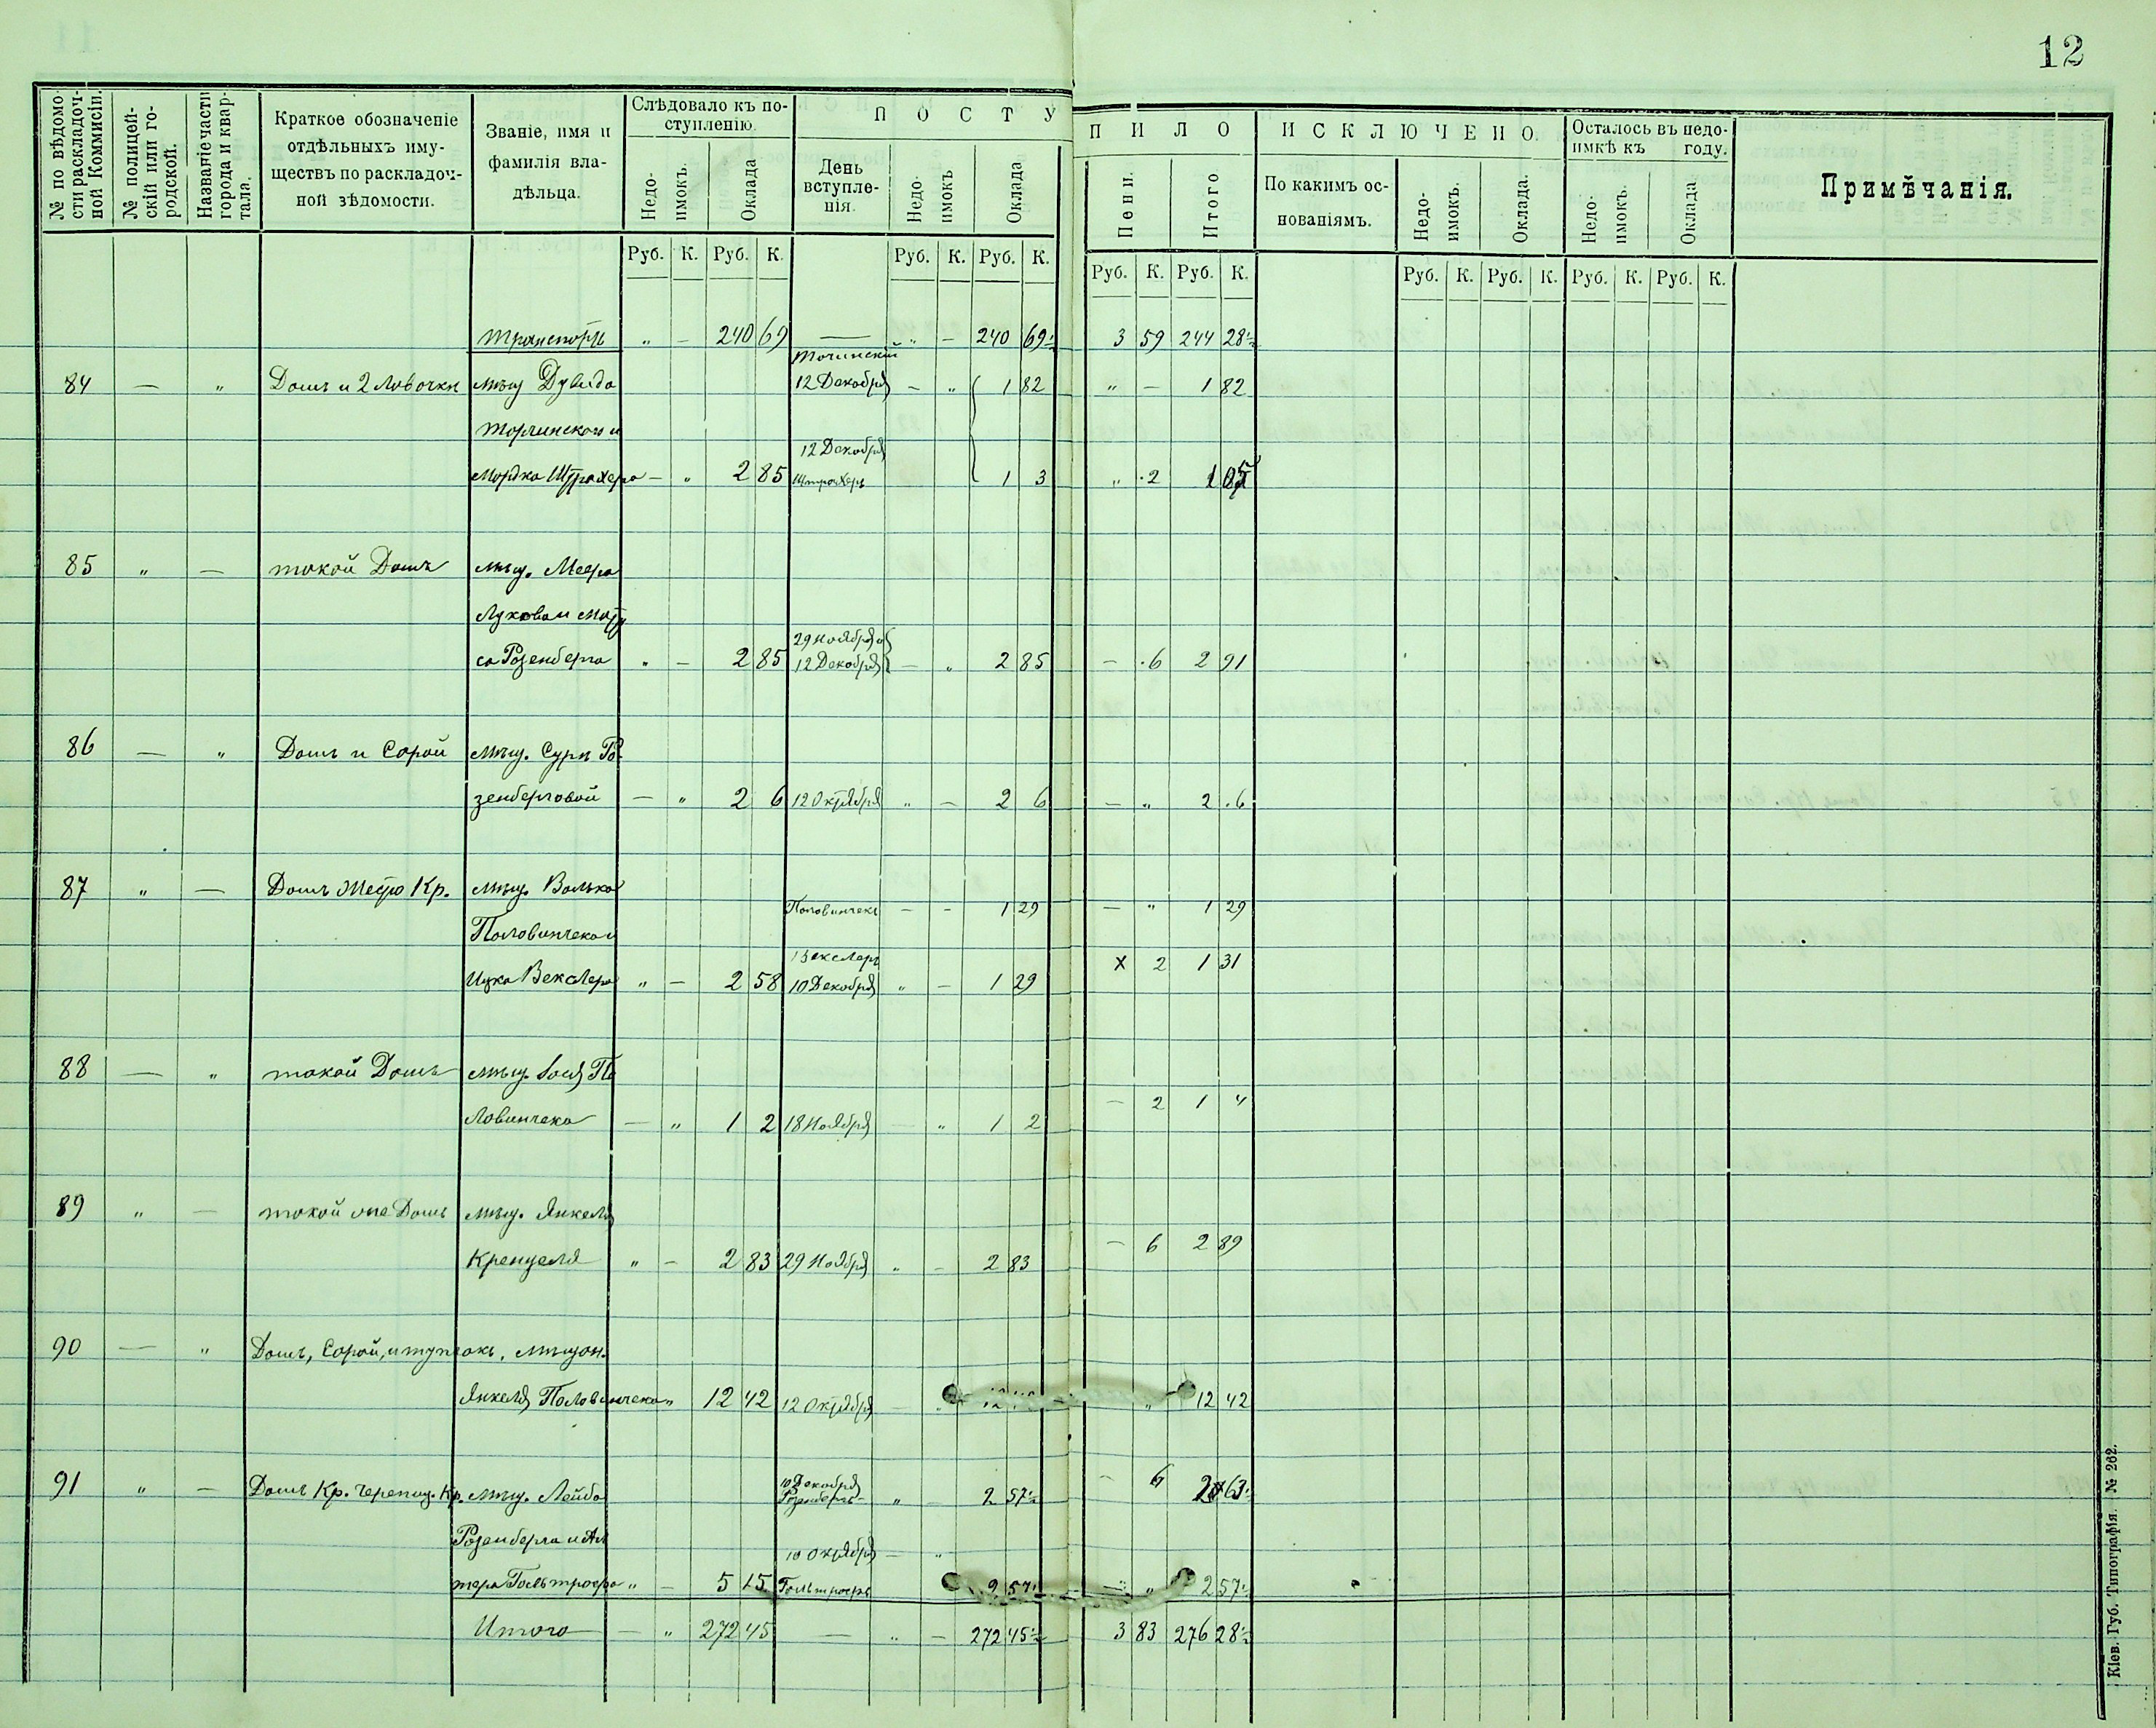 12
№ по вѣдомости раскладочной Коммисіи.
№ полицейскій или городской.
Названіе части города и квартала.
Краткое обозначеніе
отдѣльныхъ иму-
ществъ по раскладоч-
ной вѣдомости.
Званіе, имя и
фамилія вла-
дѣльца.
Слѣдовало къ по-
ступленію.
Недо-
имокъ.
Оклада
П О С Т У П И Л О
День
вступле-
нія.
Недо-
имокъ
Оклада
Пени.
Итого
И С К Л Ю Ч Е Н О.
По какимъ ос-
нованіямъ.
Недо-
имокъ.
Оклада.
Осталось въ недо-
имкѣ къ году.
Недо-
имокъ.
Оклада
Примѣчанія.
Руб. К. Руб. К. Руб. К. Руб. К. Руб. К. Руб. К. Руб. К. Руб. К. Руб. К. Руб. К.
транспортъ „ – 240 69 — „ – 240 69½ 3 59 244 28½
84 — „ Домъ и 2 лавочки мѣщ Дувида 12 Декабря – „ 1 82 „ – 1 82
12 Декабря
Мордка Штрахера – „ 2 85 Штрахеръ 1 3 „ 2 1 05
85 „ — такой Домъ мѣщ. Меера
са Розенберга „ – 2 85 29 Ноября и 12 Декабря – „ 2 85 – 6 2 91
86 — „ Домъ и Сарай мѣщ. Суры Ро-
зенберговой – „ 2 6 12 Октября „ – 2 6 – „ 2 6
87 „ — Домъ Кр. мѣщ. Волька
Половинчекъ – – 1 29 – „ 1 29
Половинчека и
Векслеръ
Ицка Векслера „ – 2 58 10 Декабря „ – 1 29 × 2 1 31
88 — „ такой Домъ мѣщ. По
ловинчека – „ 1 2 18 Ноября – „ 1 2 – 2 1 4
89 „ — такой же Домъ мѣщ. Янкеля
Кренцеля „ – 2 83 29 Ноября „ – 2 83 – 6 2 89
90 — „ Домъ, Сарай, мѣщан.
Янкеля Половинчека „ 12 42 12 Октября – 12 42 „ 12 42
91 „ — Домъ Кр. Черепиц. Кр. мѣщ. Лейба 10 Декабря Розенбергъ „ – 2 57½ – 6 2 63½
Розенберга и Ал
10 Октября – „
тера 5 15 2 57½ – „ 2 57½
Итого – „ 272 45 — „ – 272 45½ 3 83 276 28½
Кіев. Губ. Типографія. № 262.